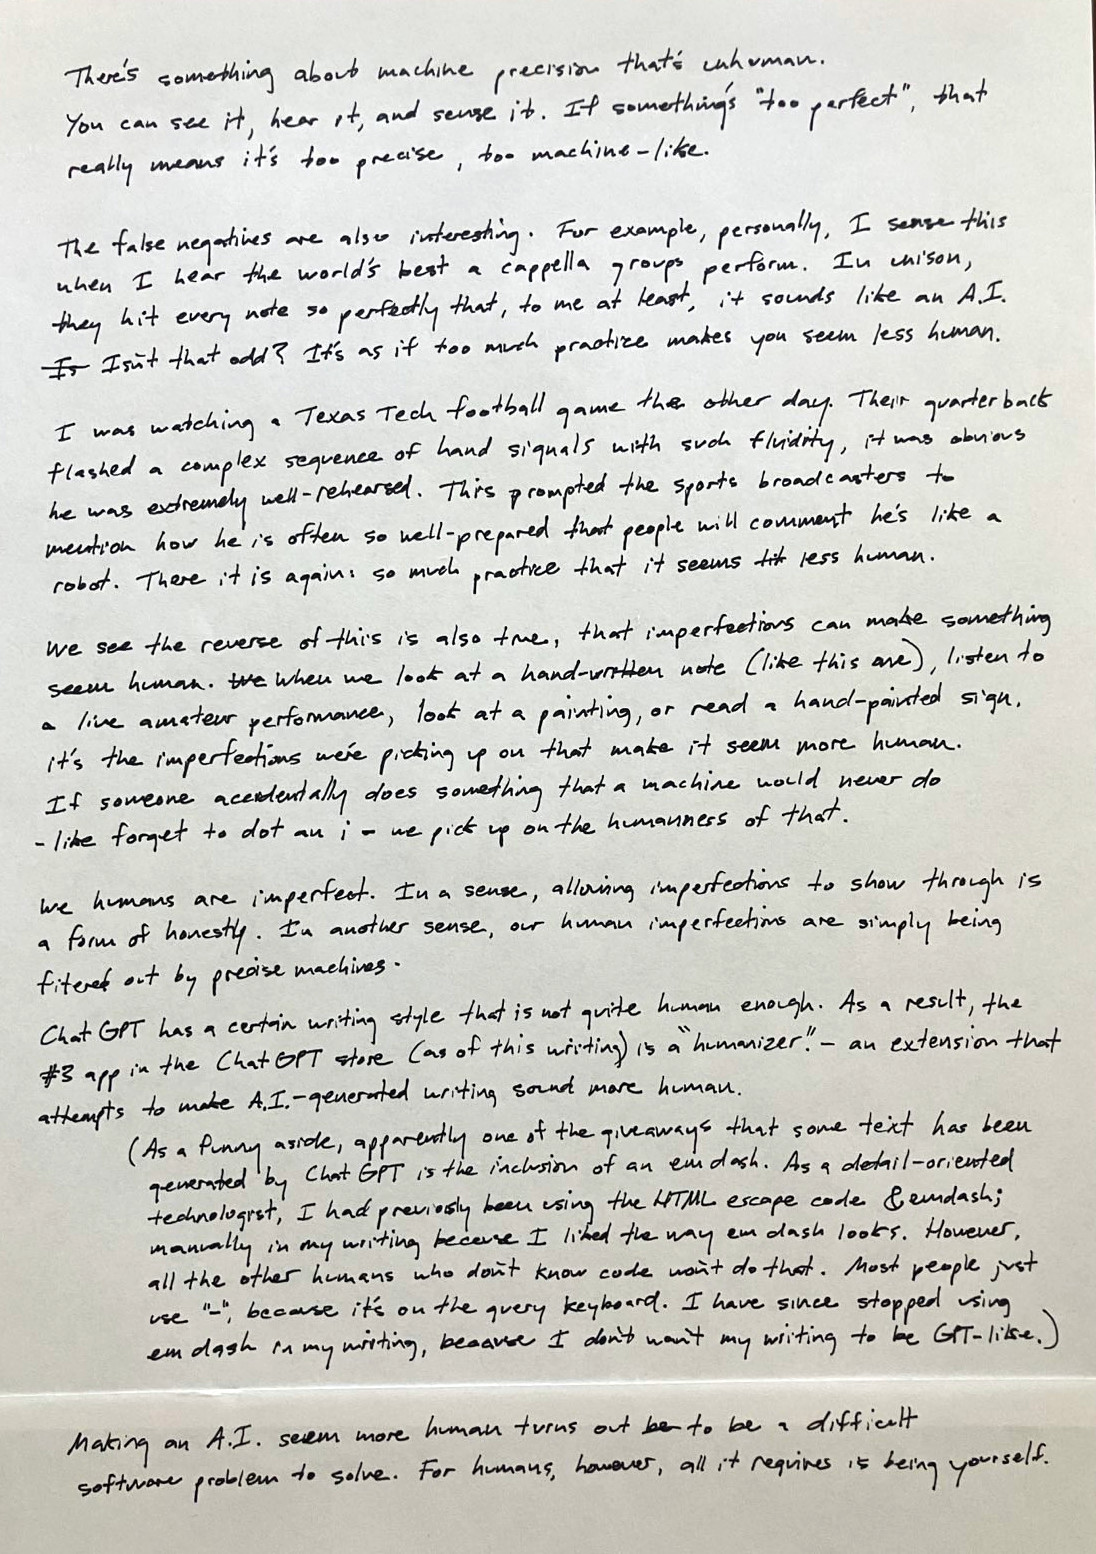 There's something about machine precision that's unhuman.
You can see it, hear it, and sense it. If something's "too perfect", that
really means it's too precise, too machine-like.
The false negatives are also interesting. For example, personally, I sense this
when I hear the world's best a cappella groups perform. In unison,
they hit every note so perfectly that, to me at least, it sounds like an A.I.
Is Isn't that odd? It's as if too much practice makes you seem less human.
I was watching a Texas Tech football game the other day. Their quarterback
flashed a complex sequence of hand signals with such fluidity, it was obvious
he was extremely well-rehearsed. This prompted the sports broadcasters to
mention how he is often so well-prepared that people will comment he's like a
robot. There it is again: so much practice that it seems less human.
We see the reverse of this is also true, that imperfections can make something
seem human. We When we look at a hand-written note (like this one), listen to
a live amateur performance, look at a painting, or read a hand-painted sign,
it's the imperfections we're picking up on that make it seem more human.
If someone accidentally does something that a machine would never do
- like forget to dot an i - we pick up on the humanness of that.
We humans are imperfect. In a sense, allowing imperfections to show through is
a form of honestly. In another sense, our human imperfections are simply being
fitered out by precise machines.
ChatGPT has a certain writing style that is not quite human enough. As a result, the
#3 app in the ChatGPT store (as of this writing) is a "humanizer." - an extension that
attempts to make A.I.-generated writing sound more human.
(As a funny aside, apparently one of the giveaways that some text has been
generated by ChatGPT is the inclusion of an em dash. As a detail-oriented
technologist, I had previously been using the HTML escape code &emdash;
manually in my writing because I liked the way em dash looks. However,
all the other humans who don't know code won't do that. Most people just
use "-", because it's on the query keyboard. I have since stopped using
em dash in my writing, because I don't want my writing to be GPT-like.)
Making an A.I. seem more human turns out be to be a difficult
software problem to solve. For humans, however, all it requires is being yourself.